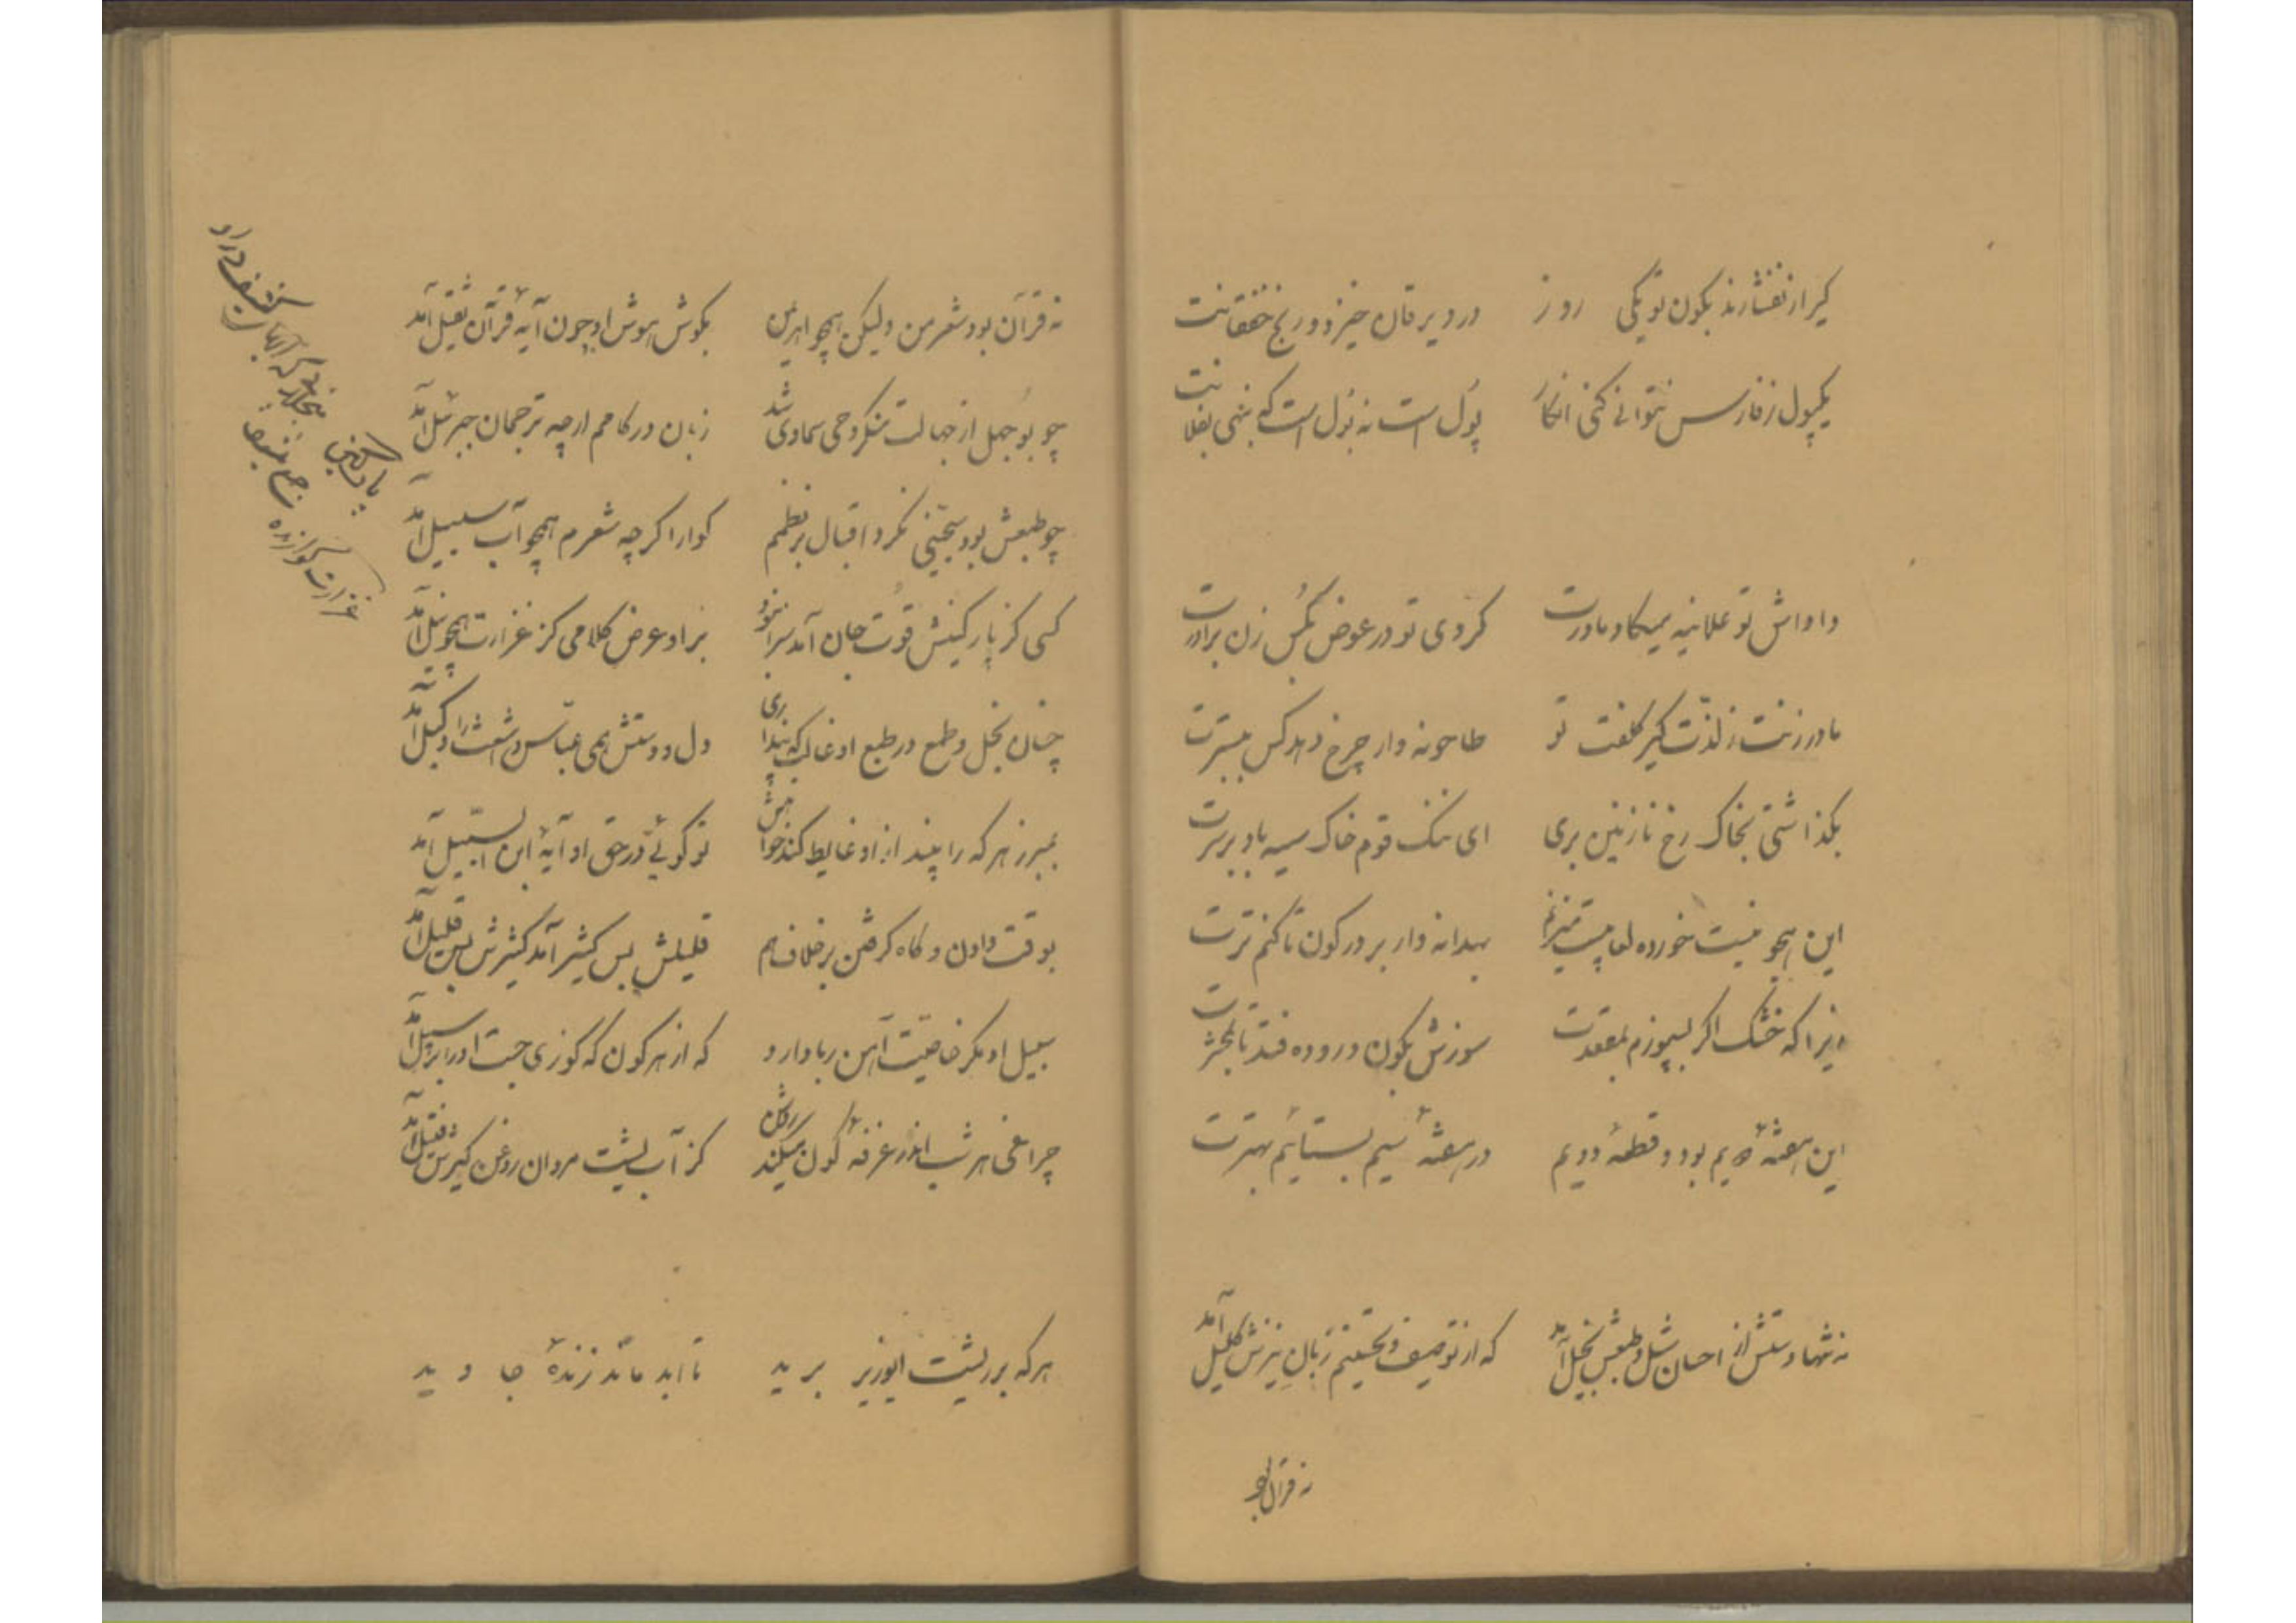 کیر ار نفشارند بکون تو یکی روز درد یرقان خیزد و رنج خفقانت
یکپول ز فارس نتوانی کنی انکار پول است نه بول است که بنهی بفلانت
داداش تو علانیه میکاد مادرت کردی تو در عوض بکس زن برادرت
مادر زنت ز لذت کیر کلفت تو طاحونه وار چرخ دهد کس ببسترت
بگذاشتی بخاک رخ نازنین بری ای ننگ قوم خاک سیه باد بر سرت
این هجو نیست خورده لعابیست بهدانه وار بر در کون تا کنم ترت
زیرا که خشک اگر بسپوزم بمقعدت سوزش بکون و روده فتد تا
این هفته دیم بود و قطعه دویم در هفته سیم بستایم بهترت
نه تنها دستش از احسان شل و طبعش بخیل آمد که از توصیف و تحسینم زبان نیزش کلیل آمد
نه قرآن بود
نه قرآن بود شعر من ولیکن همچو اهریمن بگوش هوش او چون آیه قرآن ثقیل آمد
چو بوجهل از جهالت منکر وحی سماوی شد زبان در کامم ارچه ترجمان جبرئیل آمد
چو طبعش بود سجینی نکرد اقبال بر نظمم گوارا گرچه شعرم همچو آب سلسبیل آمد
کسی کز پارگینش قوت جان آمد سزا نبود بر او عرض کلامی کز غزارت همچو نیل آمد
چنان بخل و طمع در طبع او غالب که پنداری دل و دستش همی عباس و اشعث را وکیل آمد
بمبرز هر که را بیند از او غایط کند خواهش تو گوئی در حق او آیه ابن السبیل آمد
بوقت دادن و گاه گرفتن بر خلاف هم قلیلش بس کثیر آمد کثیرش بس قلیل آمد
سبیل او مگر خاصیت آهن ربا دارد که از هر کون که گوزی جست او را بر سبیل آمد
چراغی هر شب اندر غرفه کون میکند روشن کز آب پشت مردان روغن کیرش فتیل آمد
هر که بر ریشت ایوزیر برید تا ابد ماند زنده جاوید